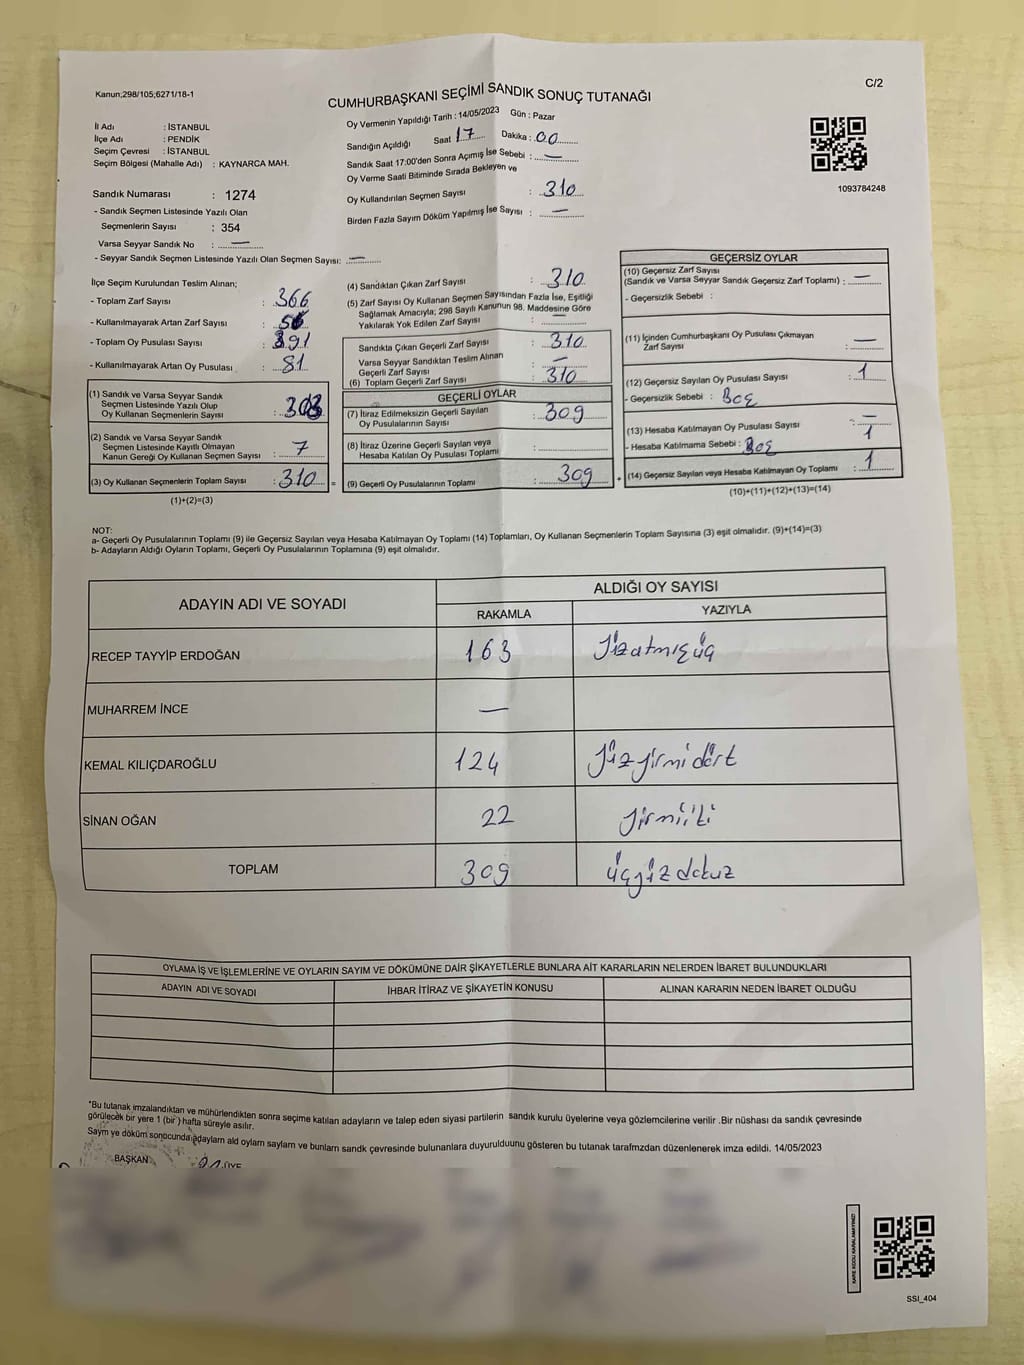 Kanun;298/105;6271/18-1
C/2
CUMHURBAŞKANI SEÇİMİ SANDIK SONUÇ TUTANAĞI
İl Adı : İSTANBUL
İlçe Adı : PENDİK
Seçim Çevresi : İSTANBUL
Seçim Bölgesi (Mahalle Adı) : KAYNARCA MAH.
Sandık Numarası : 1274
- Sandık Seçmen Listesinde Yazılı Olan
Seçmenlerin Sayısı : 354
Varsa Seyyar Sandık No : —
- Seyyar Sandık Seçmen Listesinde Yazılı Olan Seçmen Sayısı: —
Oy Vermenin Yapıldığı Tarih : 14/05/2023 Gün : Pazar
Sandığın Açıldığı Saat 17 Dakika : 00
Sandık Saat 17:00'den Sonra Açımış İse Sebebi : —
Oy Verme Saati Bitiminde Sırada Bekleyen ve
Oy Kullandırılan Seçmen Sayısı : 310
Birden Fazla Sayım Döküm Yapılmış İse Sayısı : —
1093784248
İlçe Seçim Kurulundan Teslim Alınan;
- Toplam Zarf Sayısı : 366
- Kullanılmayarak Artan Zarf Sayısı : 56
- Toplam Oy Pusulası Sayısı : 391
- Kullanılmayarak Artan Oy Pusulası : 81
(1) Sandık ve Varsa Seyyar Sandık
Seçmen Listesinde Yazılı Olup
Oy Kullanan Seçmenlerin Sayısı : 303
(2) Sandık ve Varsa Seyyar Sandık
Seçmen Listesinde Kayıtlı Olmayan
Kanun Gereği Oy Kullanan Seçmen Sayısı : 7
(3) Oy Kullanan Seçmenlerin Toplam Sayısı : 310 =
(1)+(2)=(3)
(4) Sandıktan Çıkan Zarf Sayısı : 310
(5) Zarf Sayısı Oy Kullanan Seçmen Sayısından Fazla İse, Eşitliği
Sağlamak Amacıyla; 298 Sayılı Kanunun 98. Maddesine Göre
Yakılarak Yok Edilen Zarf Sayısı : —
Sandıkta Çıkan Geçerli Zarf Sayısı : 310
Varsa Seyyar Sandıktan Teslim Alınan
Geçerli Zarf Sayısı : —
(6) Toplam Geçerli Zarf Sayısı : 310
GEÇERLİ OYLAR
(7) İtiraz Edilmeksizin Geçerli Sayılan
Oy Pusulalarının Sayısı : 309
(8) İtiraz Üzerine Geçerli Sayılan veya
Hesaba Katılan Oy Pusulası Toplamı :
(9) Geçerli Oy Pusulalarının Toplamı : 309 +
GEÇERSİZ OYLAR
(10) Geçersiz Zarf Sayısı
(Sandık ve Varsa Seyyar Sandık Geçersiz Zarf Toplamı) : —
- Geçersizlik Sebebi :
(11) İçinden Cumhurbaşkanı Oy Pusulası Çıkmayan
Zarf Sayısı : —
(12) Geçersiz Sayılan Oy Pusulası Sayısı : 1
- Geçersizlik Sebebi : BOŞ
(13) Hesaba Katılmayan Oy Pusulası Sayısı : —
- Hesaba Katılmama Sebebi : BOŞ 1
(14) Geçersiz Sayılan veya Hesaba Katılmayan Oy Toplamı : 1
(10)+(11)+(12)+(13)=(14)
NOT:
a- Geçerli Oy Pusulalarının Toplamı (9) ile Geçersiz Sayılan veya Hesaba Katılmayan Oy Toplamı (14) Toplamları, Oy Kullanan Seçmenlerin Toplam Sayısına (3) eşit olmalıdır. (9)+(14)=(3)
b- Adayların Aldığı Oyların Toplamı, Geçerli Oy Pusulalarının Toplamına (9) eşit olmalıdır.
ADAYIN ADI VE SOYADI ALDIĞI OY SAYISI
RAKAMLA YAZIYLA
RECEP TAYYİP ERDOĞAN 163 yüzatmışüç
MUHARREM İNCE —
KEMAL KILIÇDAROĞLU 124 yüzyirmidört
SİNAN OĞAN 22 yirmiiki
TOPLAM 309 üçyüzdokuz
OYLAMA İŞ VE İŞLEMLERİNE VE OYLARIN SAYIM VE DÖKÜMÜNE DAİR ŞİKAYETLERLE BUNLARA AİT KARARLARIN NELERDEN İBARET BULUNDUKLARI
ADAYIN ADI VE SOYADI İHBAR İTİRAZ VE ŞİKAYETİN KONUSU ALINAN KARARIN NEDEN İBARET OLDUĞU
*Bu tutanak imzalandıktan ve mühürlendikten sonra seçime katılan adayların ve talep eden siyasi partilerin sandık kurulu üyelerine veya gözlemcilerine verilir .Bir nüshası da sandık çevresinde
görülecek bir yere 1 (bir ) hafta süreyle asılır.
Saym ye döküm sonocunda adaylarn ald oylarn saylarn ve bunlarn sandk çevresinde bulunanlara duyurulduunu gösteren bu tutanak tarafmzdan düzenlenerek imza edildi. 14/05/2023
BAŞKAN ÜYE
KARE KODU KARALAMAYINIZ!
SSI_404